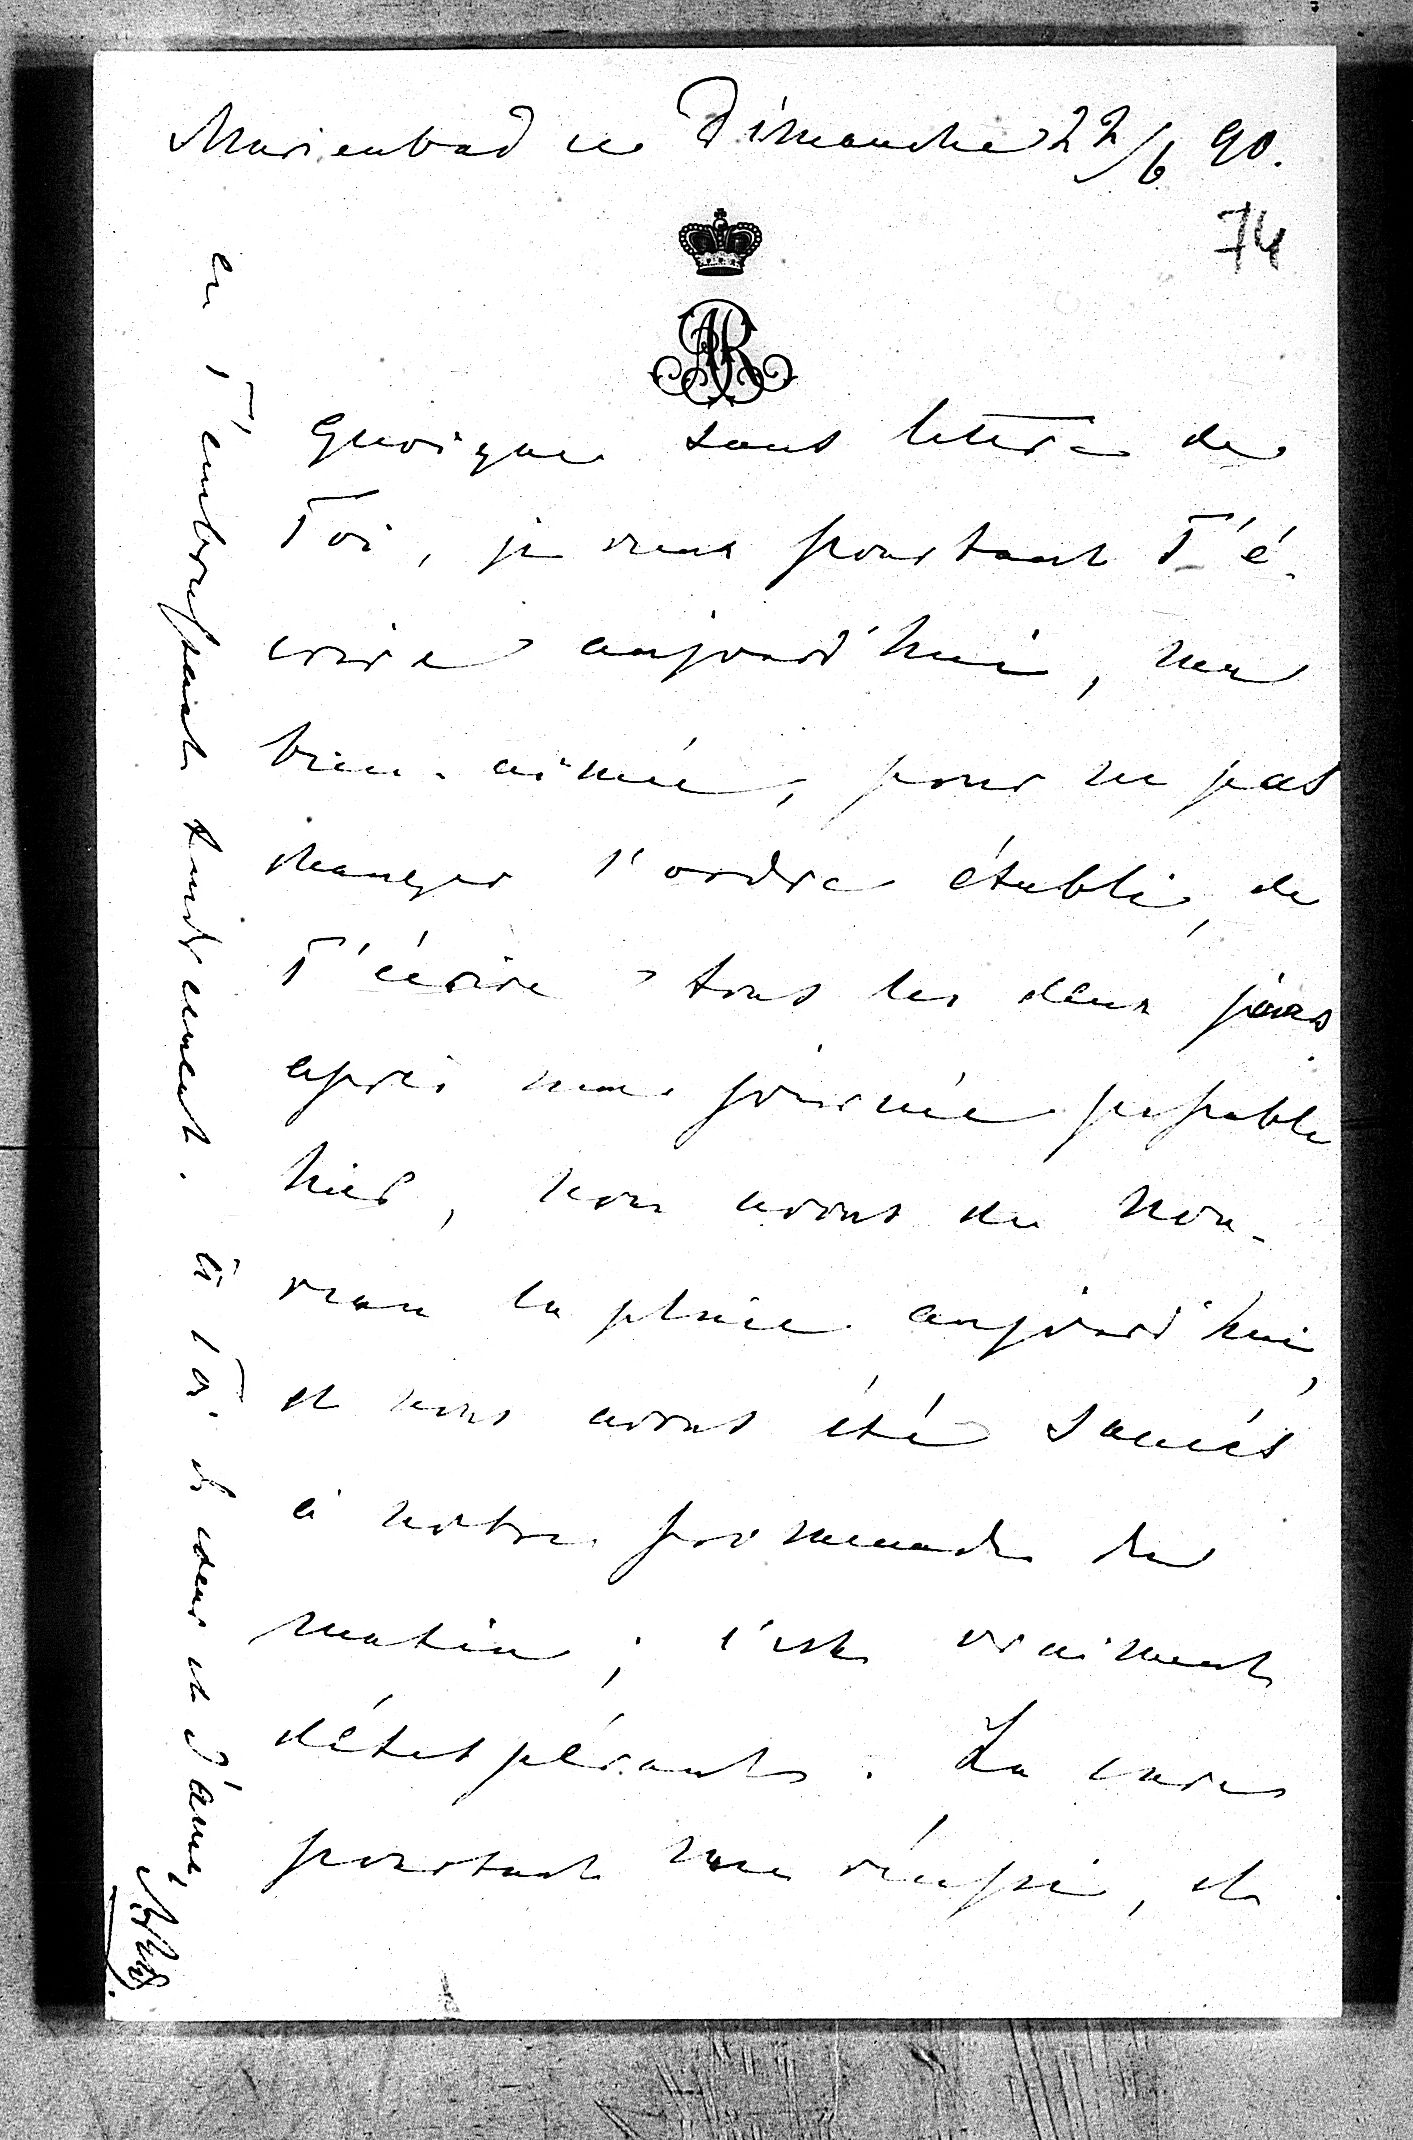 Marienbad ce Dimanche 22/6 90.
74
AR
Quoique sans lettre de
Toi, je veux pourtant T'é-
crire aujourd'hui, ma
bien-aimée, pour ne pas
changer l'ordre établi, de
T'écrire tous les deux jours
après une journée passable
hier, nous avons de nou-
veau la pluie aujourd'hui,
et nous avons été saucés
à notre promenade du
matin; c'est vraiment
désespérant. La cure
pourtant me réussi, et
en T'embrassant tendrement.
à Toi de coeur et d'âme,